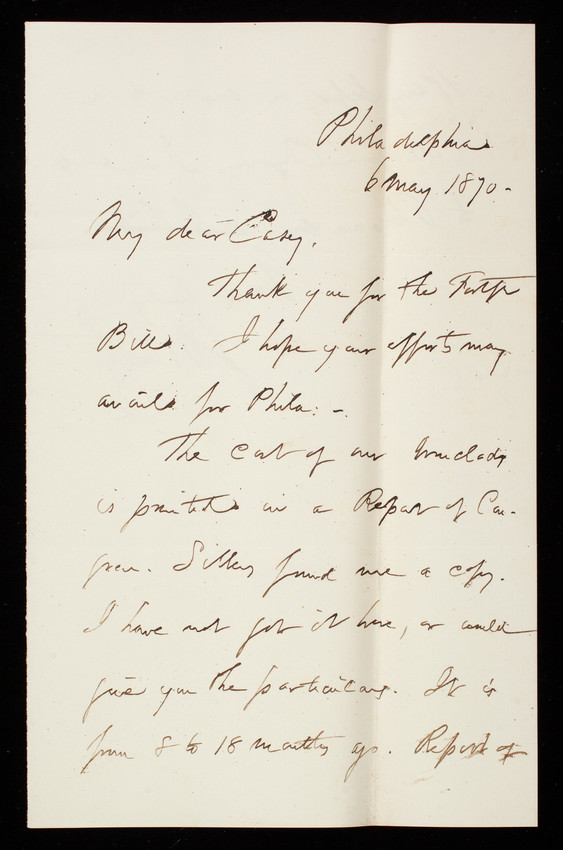 Philadelphia
6 May 1870 -
My dear Casey,
Thank you for the Fortfn
Bill. I hope your efforts may
avail for Phila: -
The cost of our Ironclads
is printed in a Report of Con-
gress. Sibley found me a copy.
I have not got it here, or would
give you the particulars. It is
from 8 to 18 months ago. Report of